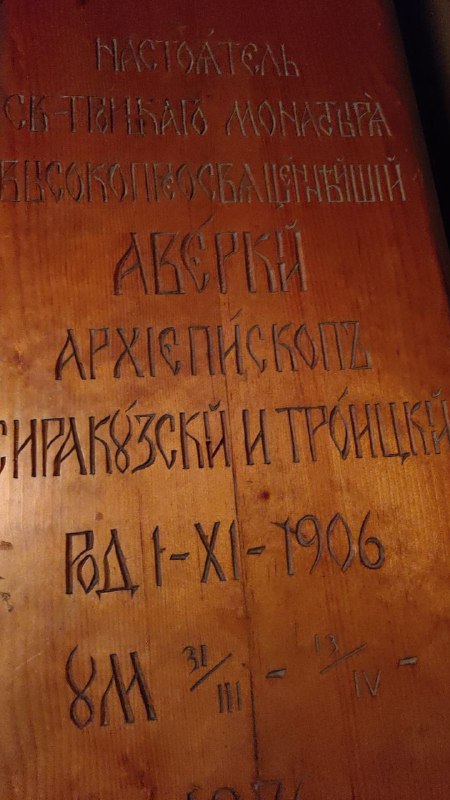 НАСТОѦ́ТЕЛЬ
СВ-ТРО́ИЦКАГѠ МОНАСТЫРѦ̀
ВЫСОКОПРЕОСВѦЩЕ́ННѢЙШІЙ
АВЕ́РКІЙ
АРХІЕПИ́СКОПЪ
СИРАКꙋ́ЗСКІЙ И ТРО́ИЦКІЙ
РОД 1-XI-1906
ꙊМ 31/III - 13/IV -
1976